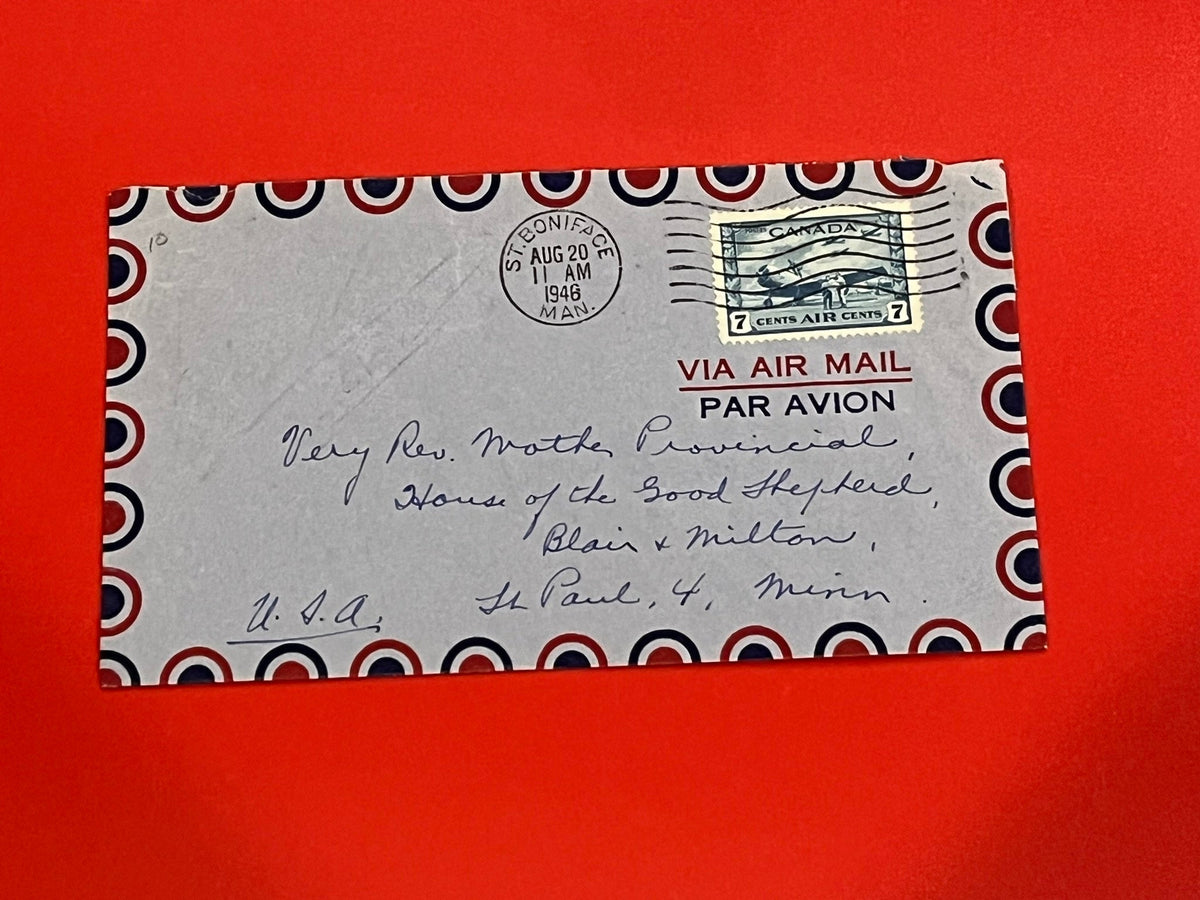 10
ST. BONIFACE
AUG 20
11 AM
1946
MAN.
POSTES CANADA
7 CENTS AIR CENTS 7
VIA AIR MAIL
PAR AVION
Very Rev. Mother Provincial,
House of the Good Shepherd,
Blair & Milton,
St Paul, 4, Minn.
U.S.A.